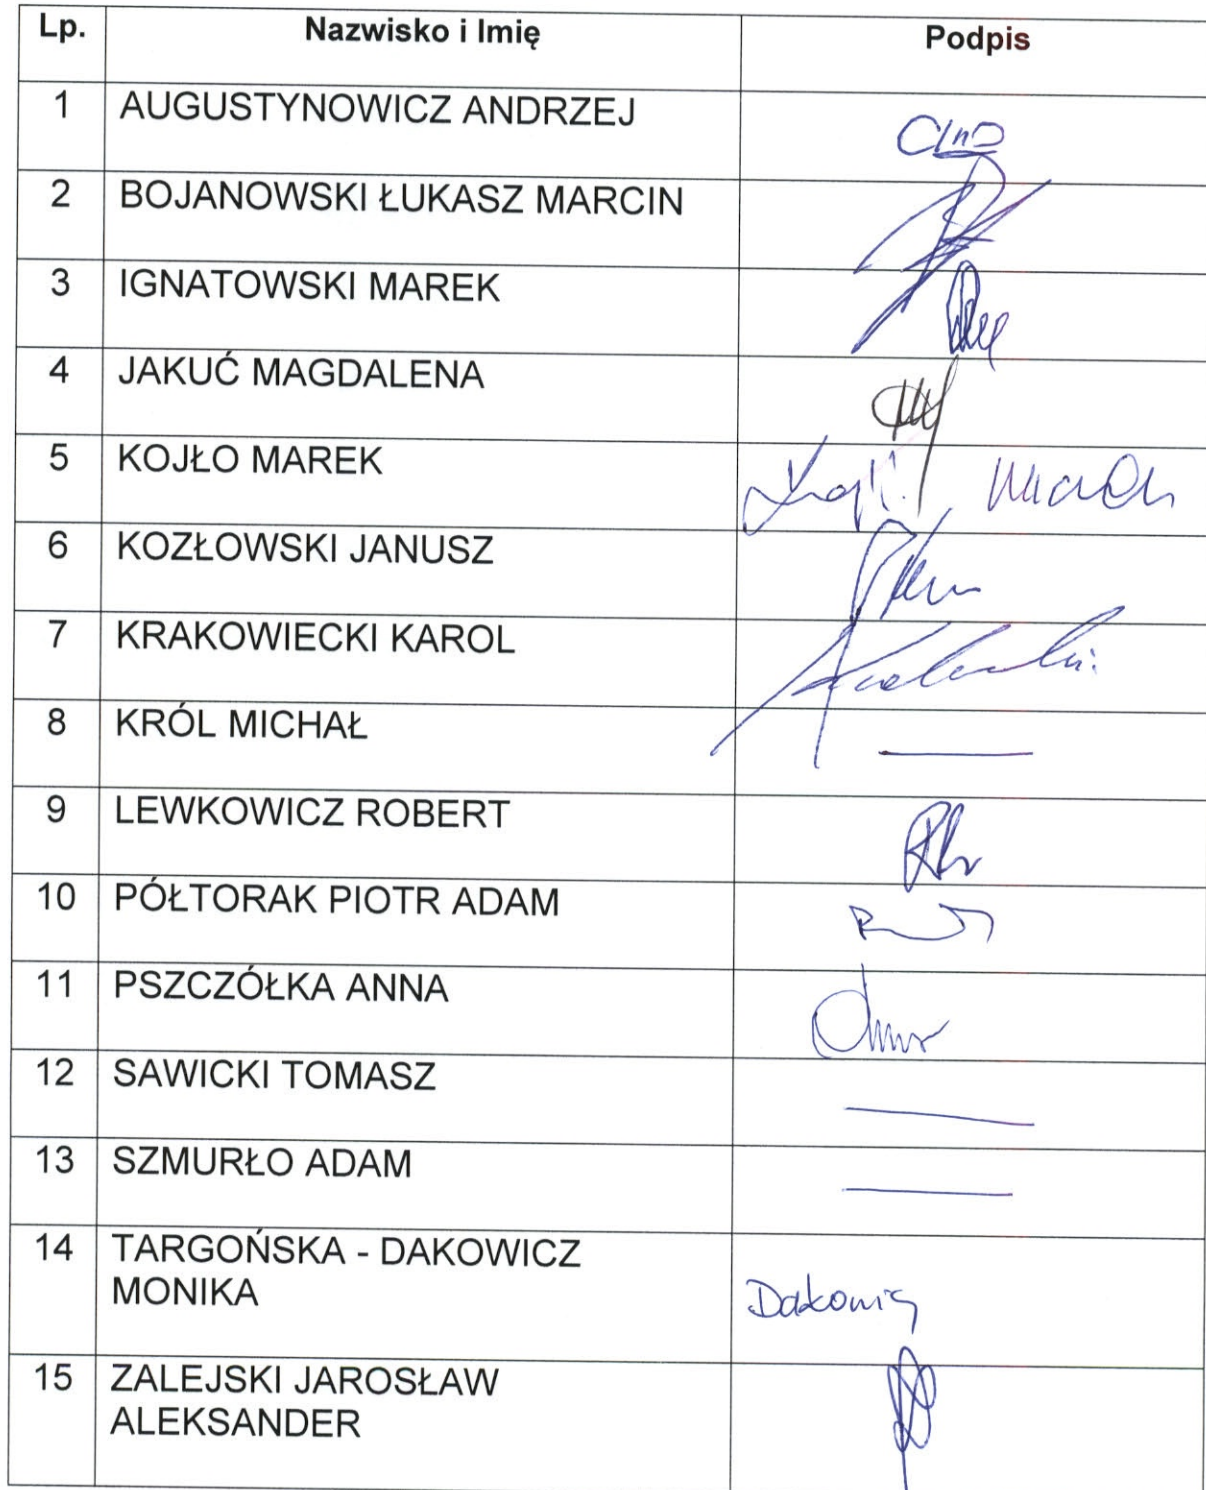 Lp. Nazwisko i Imię Podpis
1 AUGUSTYNOWICZ ANDRZEJ
2 BOJANOWSKI ŁUKASZ MARCIN
3 IGNATOWSKI MAREK
4 JAKUĆ MAGDALENA
5 KOJŁO MAREK Marek
6 KOZŁOWSKI JANUSZ
7 KRAKOWIECKI KAROL
8 KRÓL MICHAŁ
9 LEWKOWICZ ROBERT
10 PÓŁTORAK PIOTR ADAM
11 PSZCZÓŁKA ANNA
12 SAWICKI TOMASZ
13 SZMURŁO ADAM
14 TARGOŃSKA - DAKOWICZ
MONIKA Dakowicz
15 ZALEJSKI JAROSŁAW
ALEKSANDER